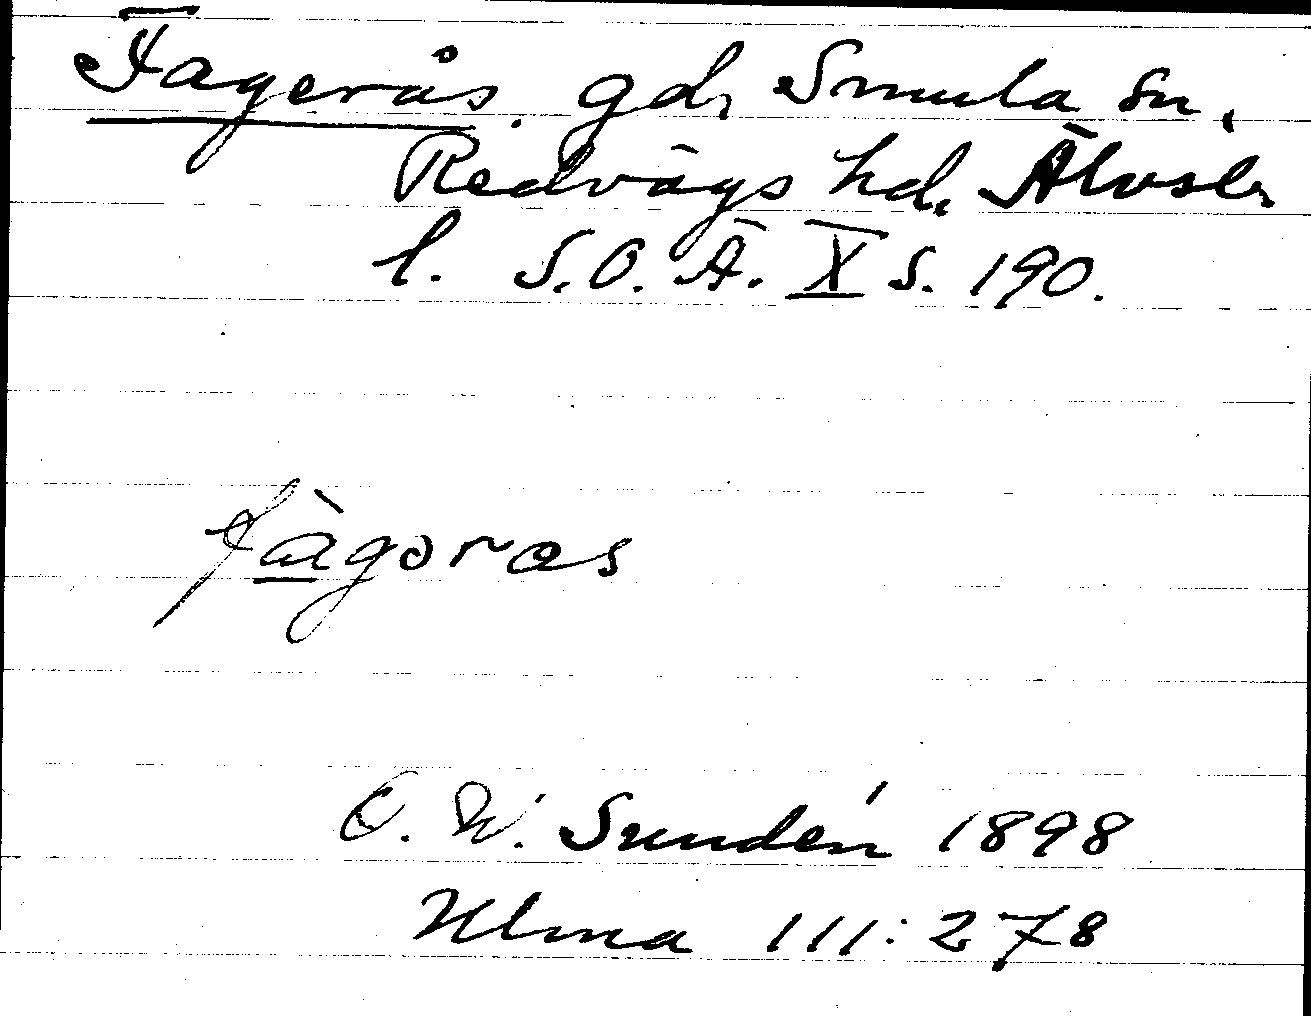 Fagerås. gd, Smula sn,
Redvägs hd. Älvsb.
l. S.O.Ä. X s. 190.
fàgoras
O. W. Sundén 1898
Ulma 111:278